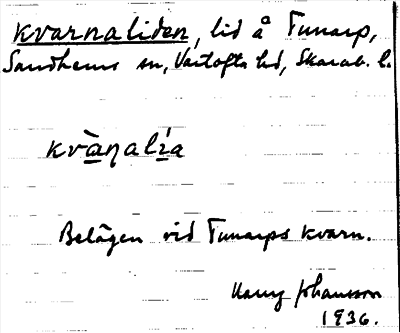 kvarnaliden, lid å Tunarp,
Sandhems sn, Vartofta hd, Skarab. l.
kvàŋalía
Belägen vid Tunarps kvarn.
Harry Johansson
1936.